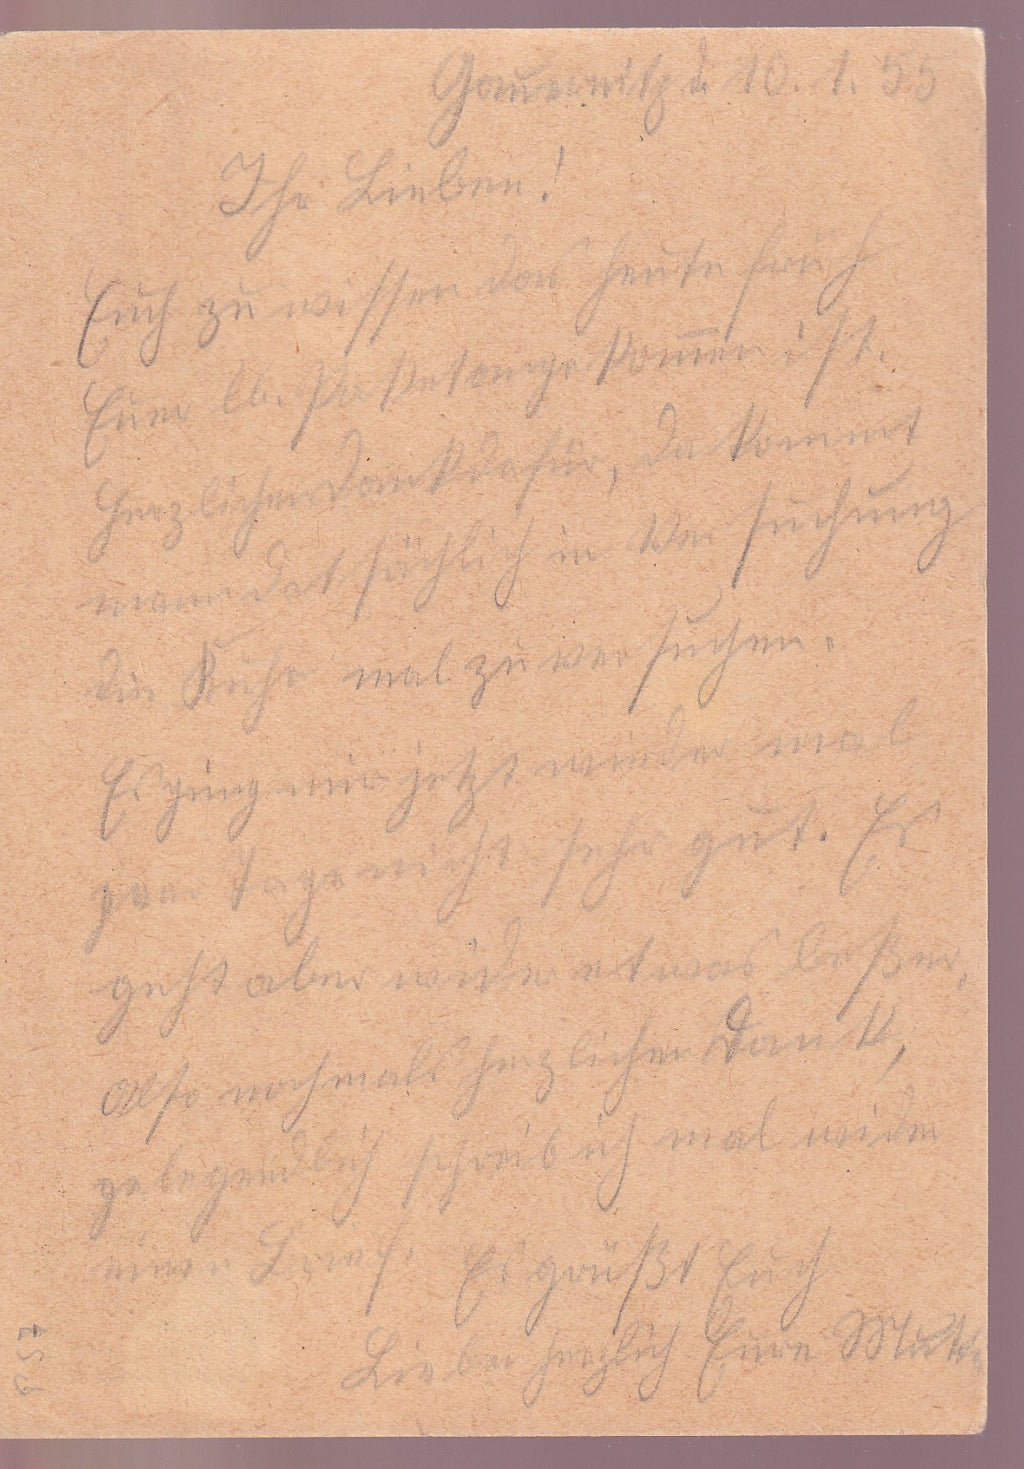 Gauernitz d. 10. 1. 55
Ihr Lieben!
Euch zu wissen das heute früh
Euer lb. Paket angekom̅en ist.
Herzlichen Dank dafür, da kommt
mann datsächlich in Versuchung
die Ruhr mal zu versuchen.
Es ging mir jetzt wieder mal
paar Tage nicht sehr gut. Es
geht aber wieder etwas beßer,
Also nochmals herzlichen Dank,
gelegendlich schreib ich mal wider
einen Brief. Es grüßt Euch
Lieben herzlich Eure Mutter